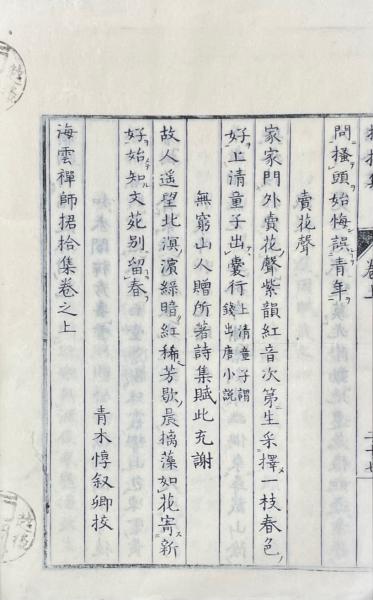 問搔頭始悔誤青年
賣花聲
家家門外賣花聲紫韻紅音次第生采擇一枝春色
好上清童子出囊行上清童子謂錢出唐小說
無窮山人贈所著詩集賦此充謝
故人遥望北溟濱綠暗紅稀芳歇晨摛藻如花寄新
好始知文苑別留春
青木惇叙卿挍
海雲禪師捃拾集卷之上